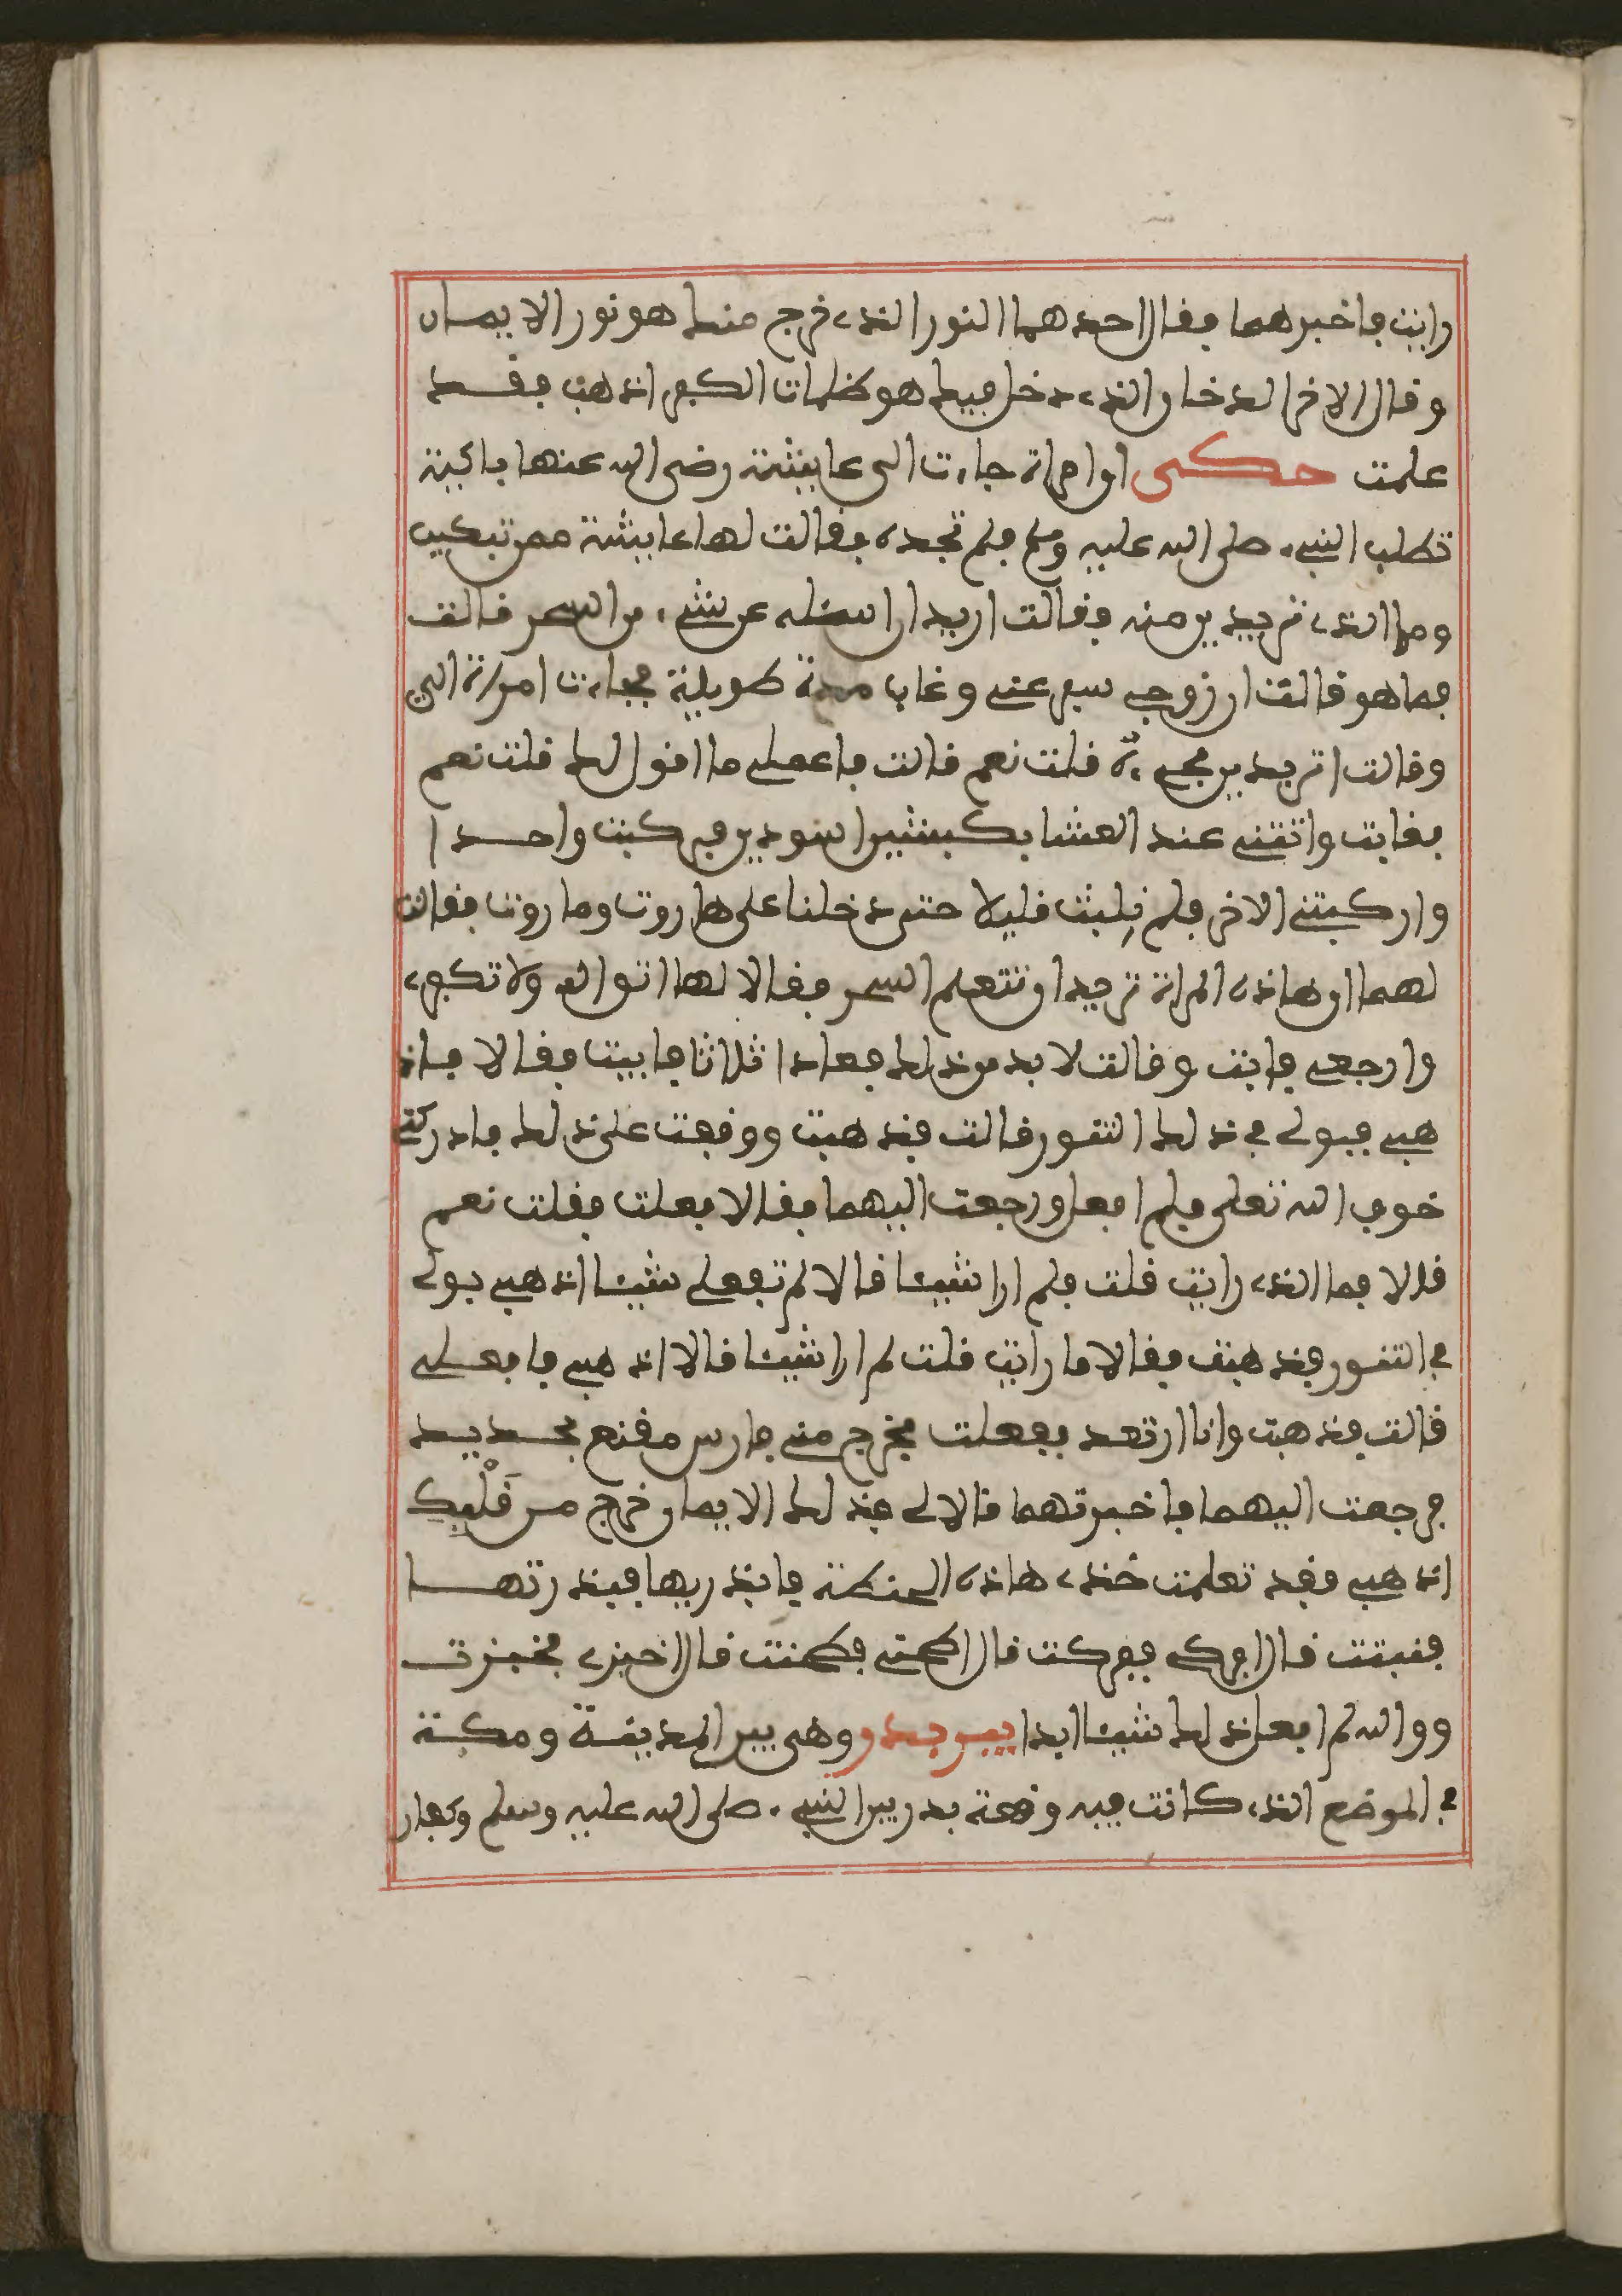 رايت فاخبرهما فقال احدهما النور الذي خرج منك هو نور الايمان
وقال الاخر الدخان الذي دخل فيك هو ظلمات الكفر اذهب فقد
علمت حكى ان امراة جاءت الى عايشة رضى الله عنها باكية
تطلب النبيء صلى الله عليه وسلم فلم تجده فقالت لها عايشة مم تبكين
وما الذي تريدين منه فقالت اريد ان اسئله عن شيء من السحر قالت
فما هو قالت ان زوجي سفر عني وغاب مدة طويلة فجاءت امراة الي
وقالت اتريدين مجيئه قلت نعم قالت فاعملي ما اقول لك قلت نعم
فغابت واتتني عند العشا بكبشين اسودين فركبت واحدا
واركبتني الاخر فلم نلبث قليلا حتى دخلنا على هاروت وماروت فقالت
لهما ان هاذه المراة تريد ان تتعلم السحر فقالا لها اتق الله ولا تكفري
وارجعي فابت وقالت لا بد من ذلك فعادا ثلاثا فابيت فقالا فاذ
هبي فبولي في ذلك التنور قالت فذهبت ووقفت على ذلك فادركني
خوف الله تعلى فلم افعل ورجعت اليهما فقالا فعلت فقلت نعم
قالا فما الذي رايت قلت فلم ار شيئا قالا لم تفعلي شيئا اذهبي بولي
في التنور فذهبت فقالا ما رايت قلت لم ار شيئا قالا اذهبي فافعلي
قالت فذهبت وانا ارتعد ففعلت فخرج مني فارس مقنع بحديد
فرجعت اليهما فاخبرتهما قالا لي فذلك الايمان خرج من قَلْبِك
اذهبي فقد تعلمت خذي هاذه الحنطة فابذريها فبذرتها
فنبتت قال افركي ففركت قال اطحني فطحنت قال اخبزي فخبزت
ووالله لم افعل ذلك شيئا ابدا بير بدر وهى بين المدينة ومكة
في الموضع الذي كانت فيه وقعة بدر بين النبيء صلى الله عليه وسلم وكفار